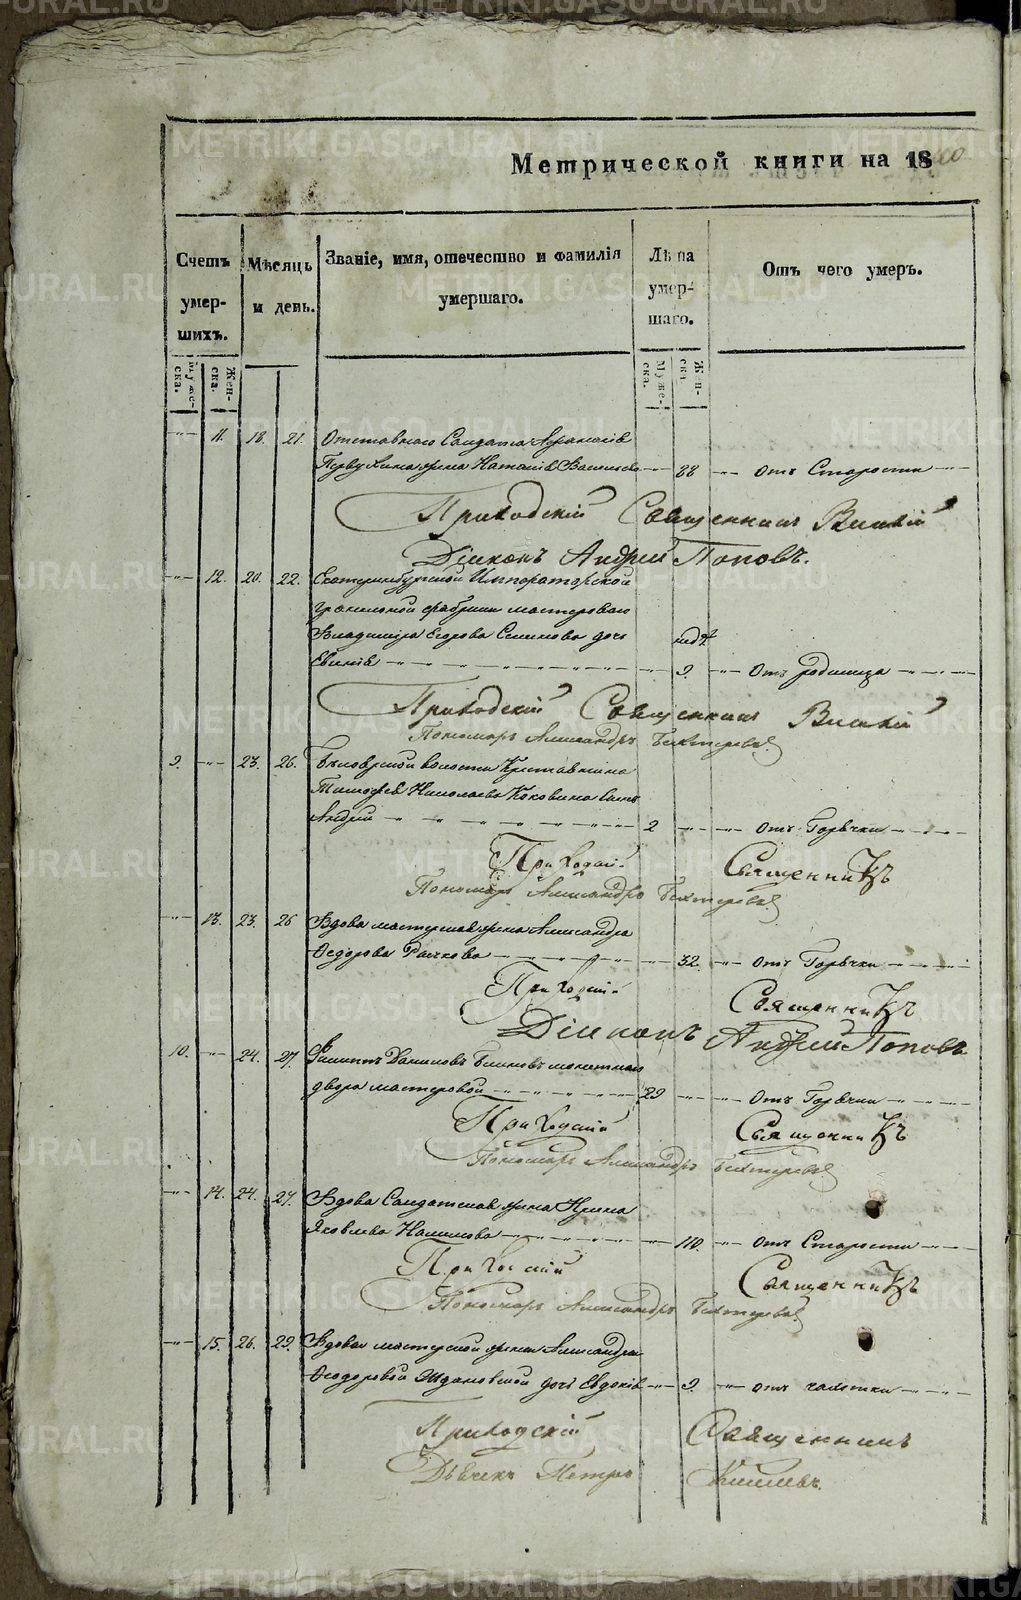 METRIKI.GASO-URAL.RU
Метрической книги на 18
Счетъ умер-шихъ.
Мѣсяцъ и день.
Званіе, имя, отечество и фамилія умершаго.
Лѣта умер-шаго.
Отъ чего умеръ.
Муже-ска.
Жен-ска.
Муже-ска.
Жен-ска.
11. 18. 21. Отставнаго Солдата
жена Наталія 88 отъ Старости
Приходскій Священникъ
Діаконъ Андрей Поповъ.
12. 20. 22. Екатеринбургской Императорской
гранильной фабрики мастероваго
Владиміра Егорова дочь нед.
9. отъ родимца
Приходскій Священникъ
Пономарь Александръ
9. 23. 26. волости Крестьянина
Тимофея Николаева Коковина сынъ
Андрей 2 отъ Горячки
Приходскій Священникъ
Пономарь Александръ
13. 23. 26 Вдова мастерская жена Александра
Ѳедорова 32. отъ Горячки
Приходскій Священникъ
Діаконъ Андрей Поповъ.
10. 24. 27. Филиппъ Даниловъ монетнаго
двора мастеровой 29 отъ Горячки
Приходскій Священникъ
Пономарь Александръ
14. 24. 27. Вдова Солдатская жена Ирина
Яковлева 110. отъ Старости
Приходскій Священникъ
Пономарь Александръ
15. 26. 29. Вдовы мастерской жены Александры
Ѳеодоровой дочь Евдокія 9. отъ чахотки
Приходскій Священникъ
Дьячекъ Петръ